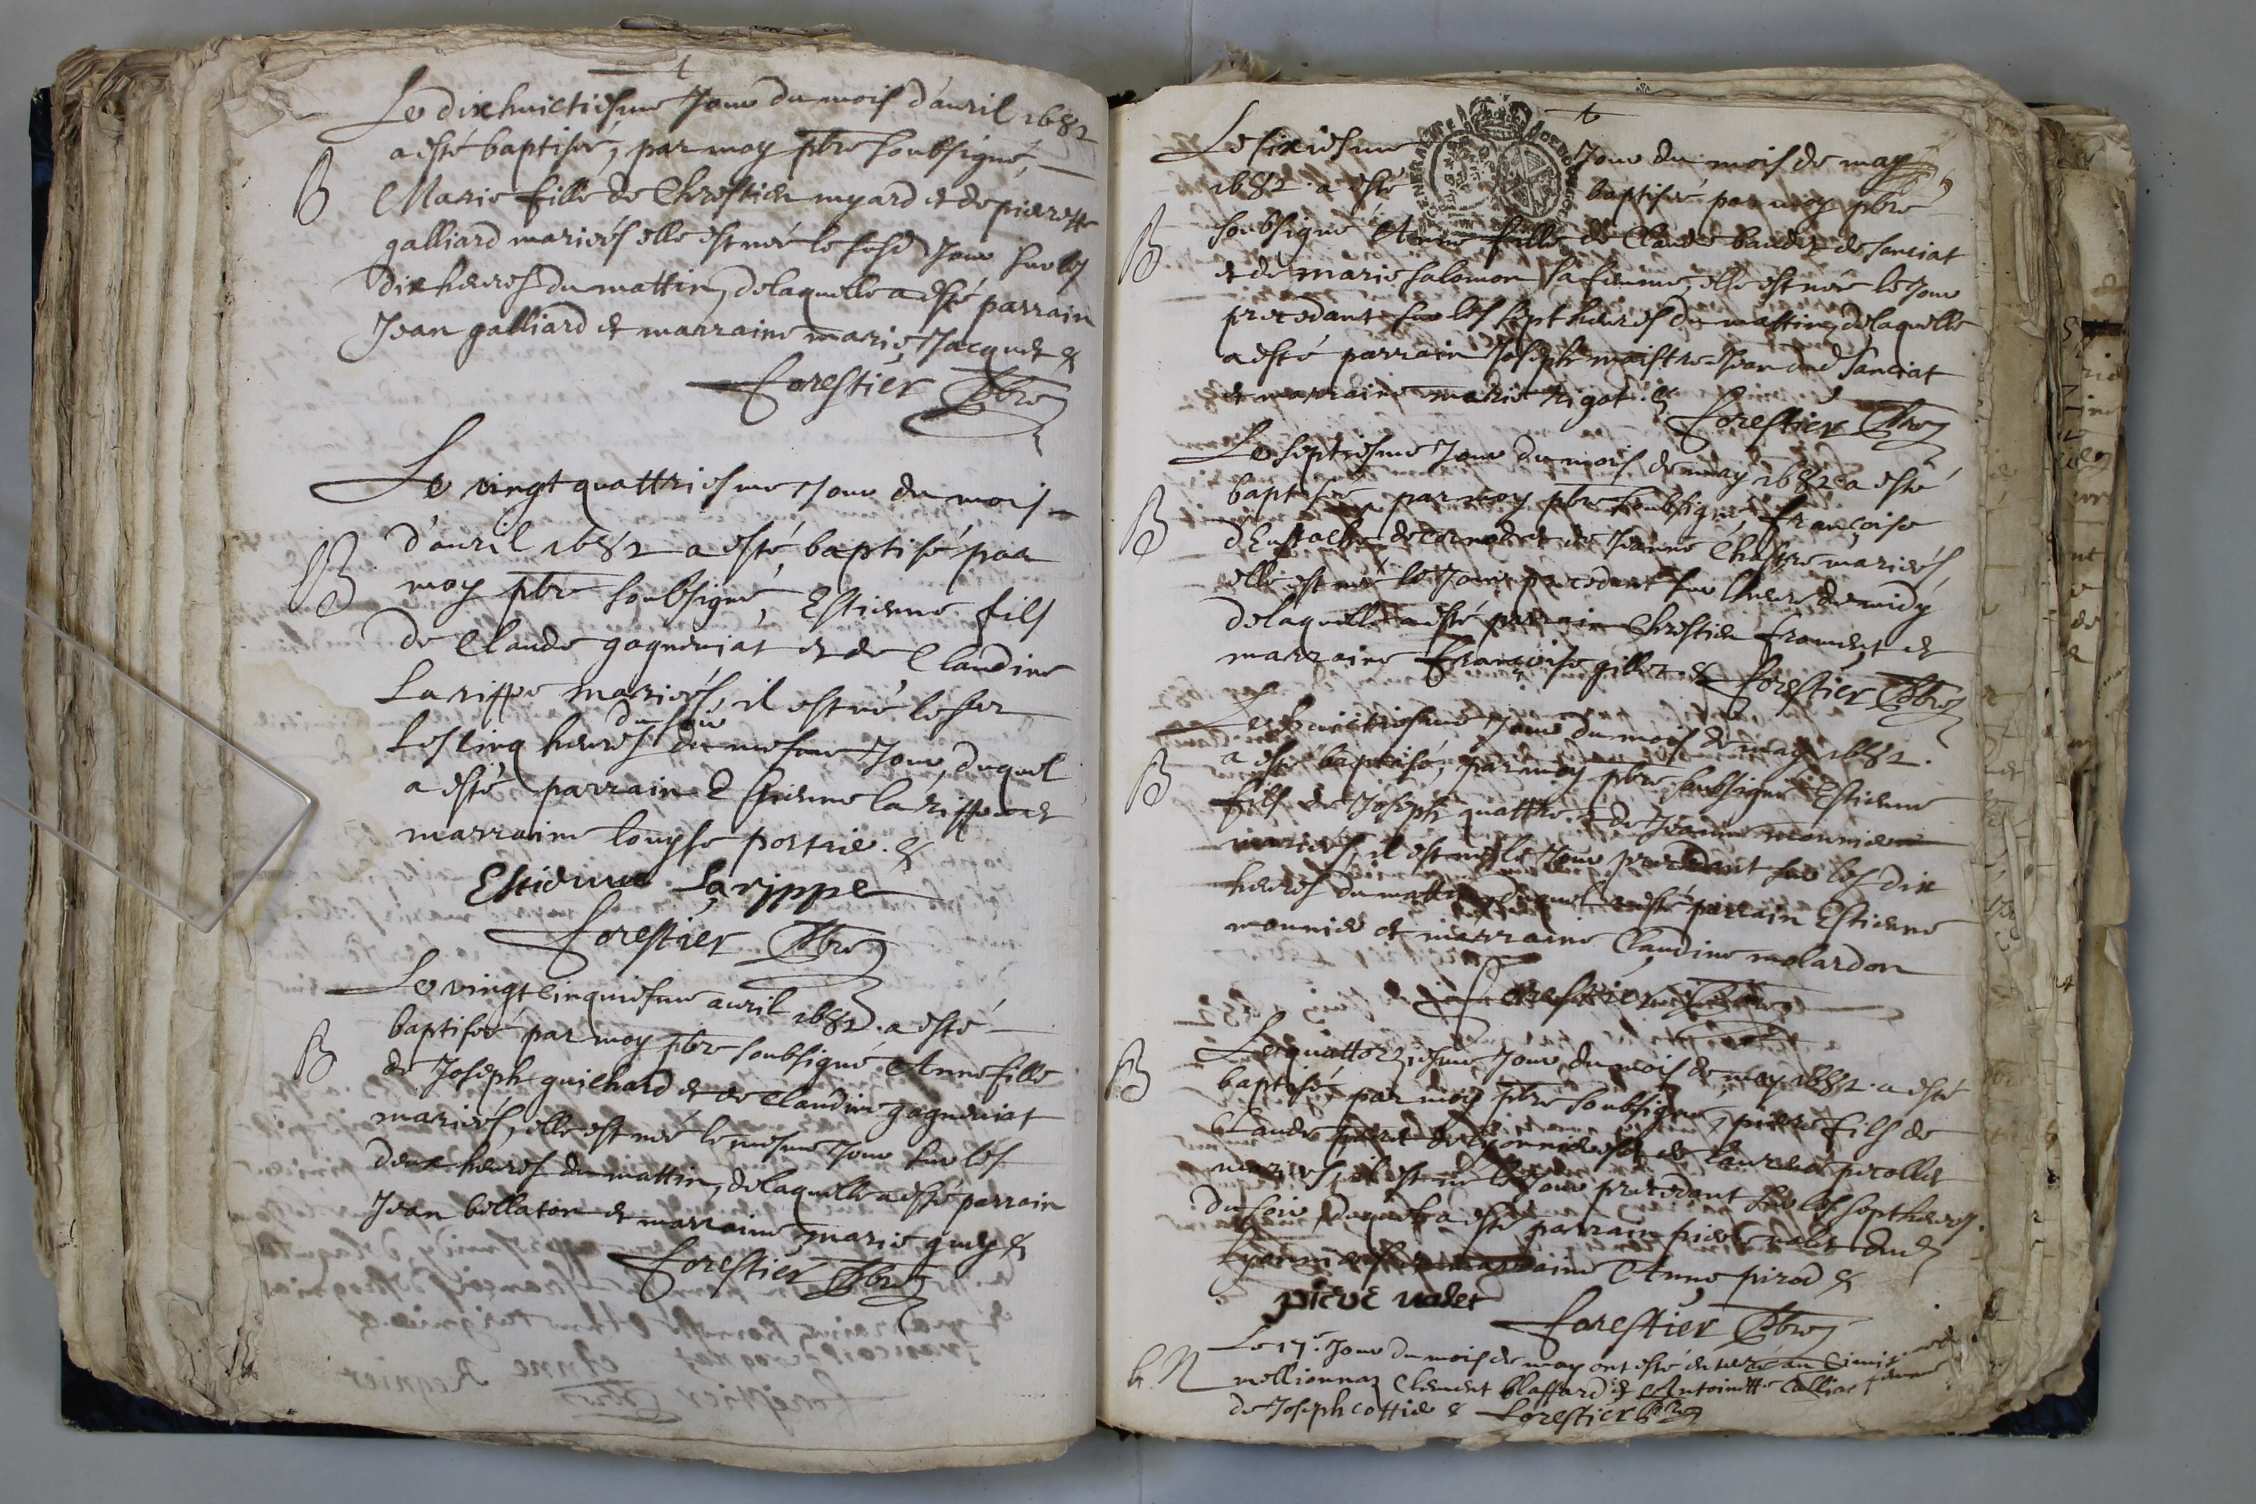 Le dixhuictiesme Jour du mois d'auril 1682
a esté baptisée, par moy pbre soubsigné,
B
Marie fille de Chrestien myard et de pierrette
galliard mariés elle est née le susd Jour sur les
dix heures du mattin, de laquelle a esté parrain
Jean galliard et marraine marie Jacquet &
Forestier pbre
Le vingt quattriesme Jour du mois
d'auril 1682 a esté, baptisé par
B
moy pbre soubsigné, Estienne fils
de Claude gagneuiat et de Claudine
Larippe mariés, il est né le sur
du soir
les cinq heures du mesme Jour, duquel
a esté parrain Estienne larippe et
marraine louyse portrie. &
Estienne Larippe
Forestier pbre
Le vingt cinquiesme auril 1682. a esté
baptisée par moy pbre soubsigné Anne fille
B
de Joseph guichard et de Claudine gagneuiat
mariés, elle est née le mesme Jour sur les
deux heures du mattin, de laquelle a esté parrain
Jean bellaton et marraine marie guey &
Forestier pbre
Le sixiesme Jour du mois de may
1682. a esté baptisée par moy pbre
B
soubsigné Anne fille de Claude baudet de sanciat
et de marie salomon sa femme, elle est née le Jour
precedant sur les sept heures du mattin, de laquelle
a esté parrain Joseph maistre Jean dud Sanciat
et marraine marie rigot. &
Forestier pbre
Le septiesme Jour du mois de may 1682 a esté
baptisée par moy pbre soubsigné, françoise
B
d'Eustache de et de Jeanne mariés,
elle est née le Jour precedant sur l'heure de midy
de laquelle a esté parrain Chrestien froment et
marraine françoise gillet & Forestier pbre
Le huictiesme Jour du mois de may 1682.
a esté baptisé, par moy pbre soubsigné Estienne
B
fils de Joseph quattre et de Jeanne monnier
mariés, il est né le Jour precedant sur les dix
heures du mattin duquel a esté parrain Estienne
monnier et marraine Claudine molardon
Forestier pbre
Le quattorziesme Jour du mois de may 1682. a esté
B
baptisé par moy pbre soubsigné, pierre fils de
Claude de et de laurence
mariés, il est né le Jour precedant sur les sept heures
du soir, duquel a esté parrain pierre valet dud
et marraine Anne pirod &
pierre valet
Forestier pbre
Le 17e. Jour du mois de may ont esté enterré au
mellionnaz Clement blaffard et Antoinette femme
de Joseph cottier & Forestier pbre